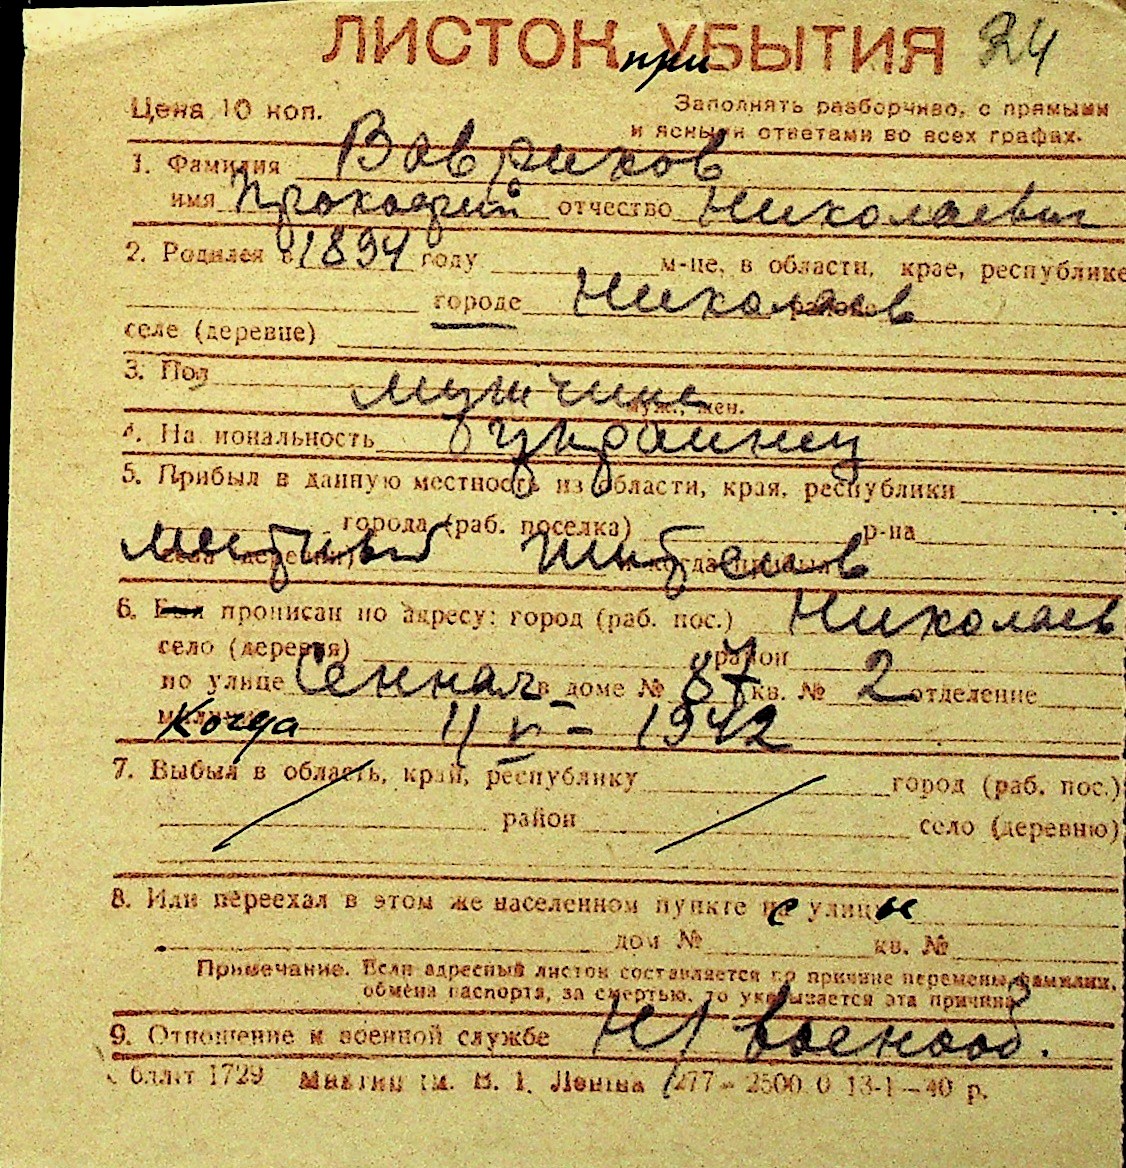 ЛИСТОК УБЫТИЯ 324
при
Цена 10 коп. Заполнять разборчиво, с прямыми
и ясными ответами во всех графах.
1. Фамилия Вавриков
имя Прокофий отчество Николаевич
2. Родился в 1894 году м-це, в области, крае, республике
городе Николаев районе
селе (деревне)
3. Пол мужчина
муж., жен.
4. На иональность украинец
5. Прибыл в данную местность из области, края, республики
города (раб. поселка) р-на
местный житель
села (деревни) когда прибыл
6. Был прописан по адресу: город (раб. пос.) Николаев
село (деревня) район
по улице Сенная в доме № 87 кв. № 2 отделение
милиции Когда 11 VI - 1942
7. Выбыл в область, край, республику город (раб. пос.)
район село (деревню)
8. Или переехал в этом же населенном пункте с улицы
дом № кв. №
Примечание. Если адресный листок составляется по причине перемены фамилии,
обмена паспорта, за смертью, то указывается эта причина
9. Отношение к военной службе Н/военооб.
1729 им. В. І. Леніна 277 - 2500 0 13-1-40 р.